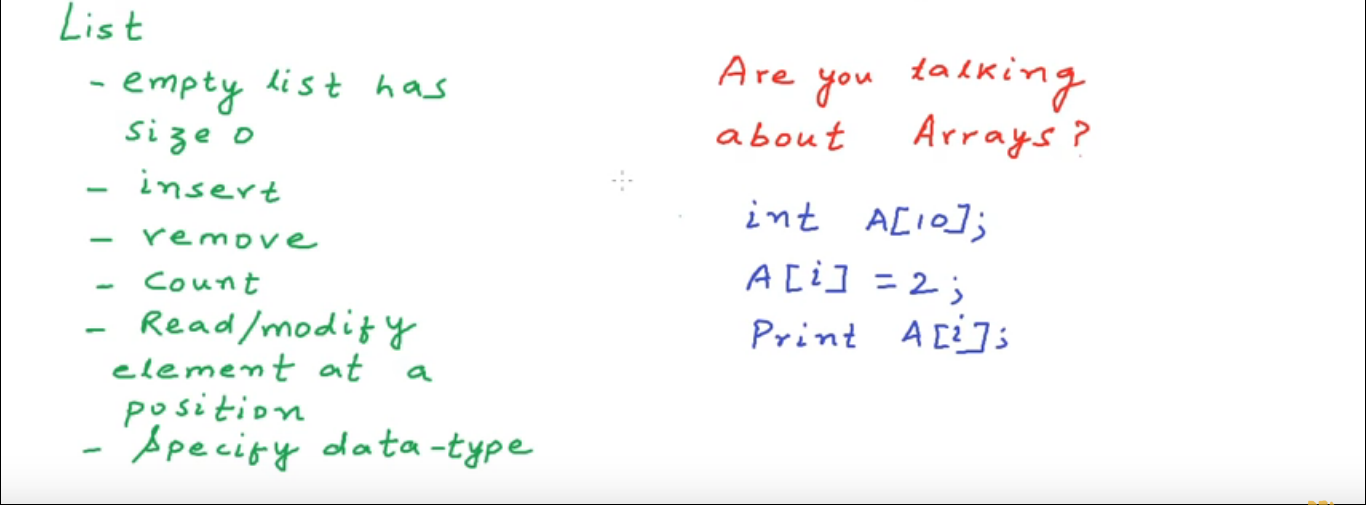 List
- empty list has
size 0
- insert
- remove
- Count
- Read/modify
element at a
position
- Specify data-type
Are you talking
about Arrays?
int A[10];
A[i] = 2;
Print A[i];